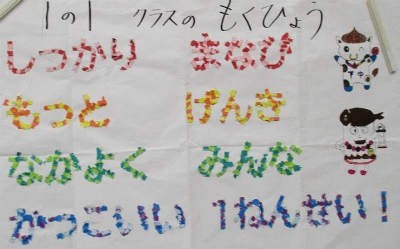 1の1 クラスの もくひょう
しっかり まなび
もっと げんき
なかよく みんな
かっこいい 1ねんせい!